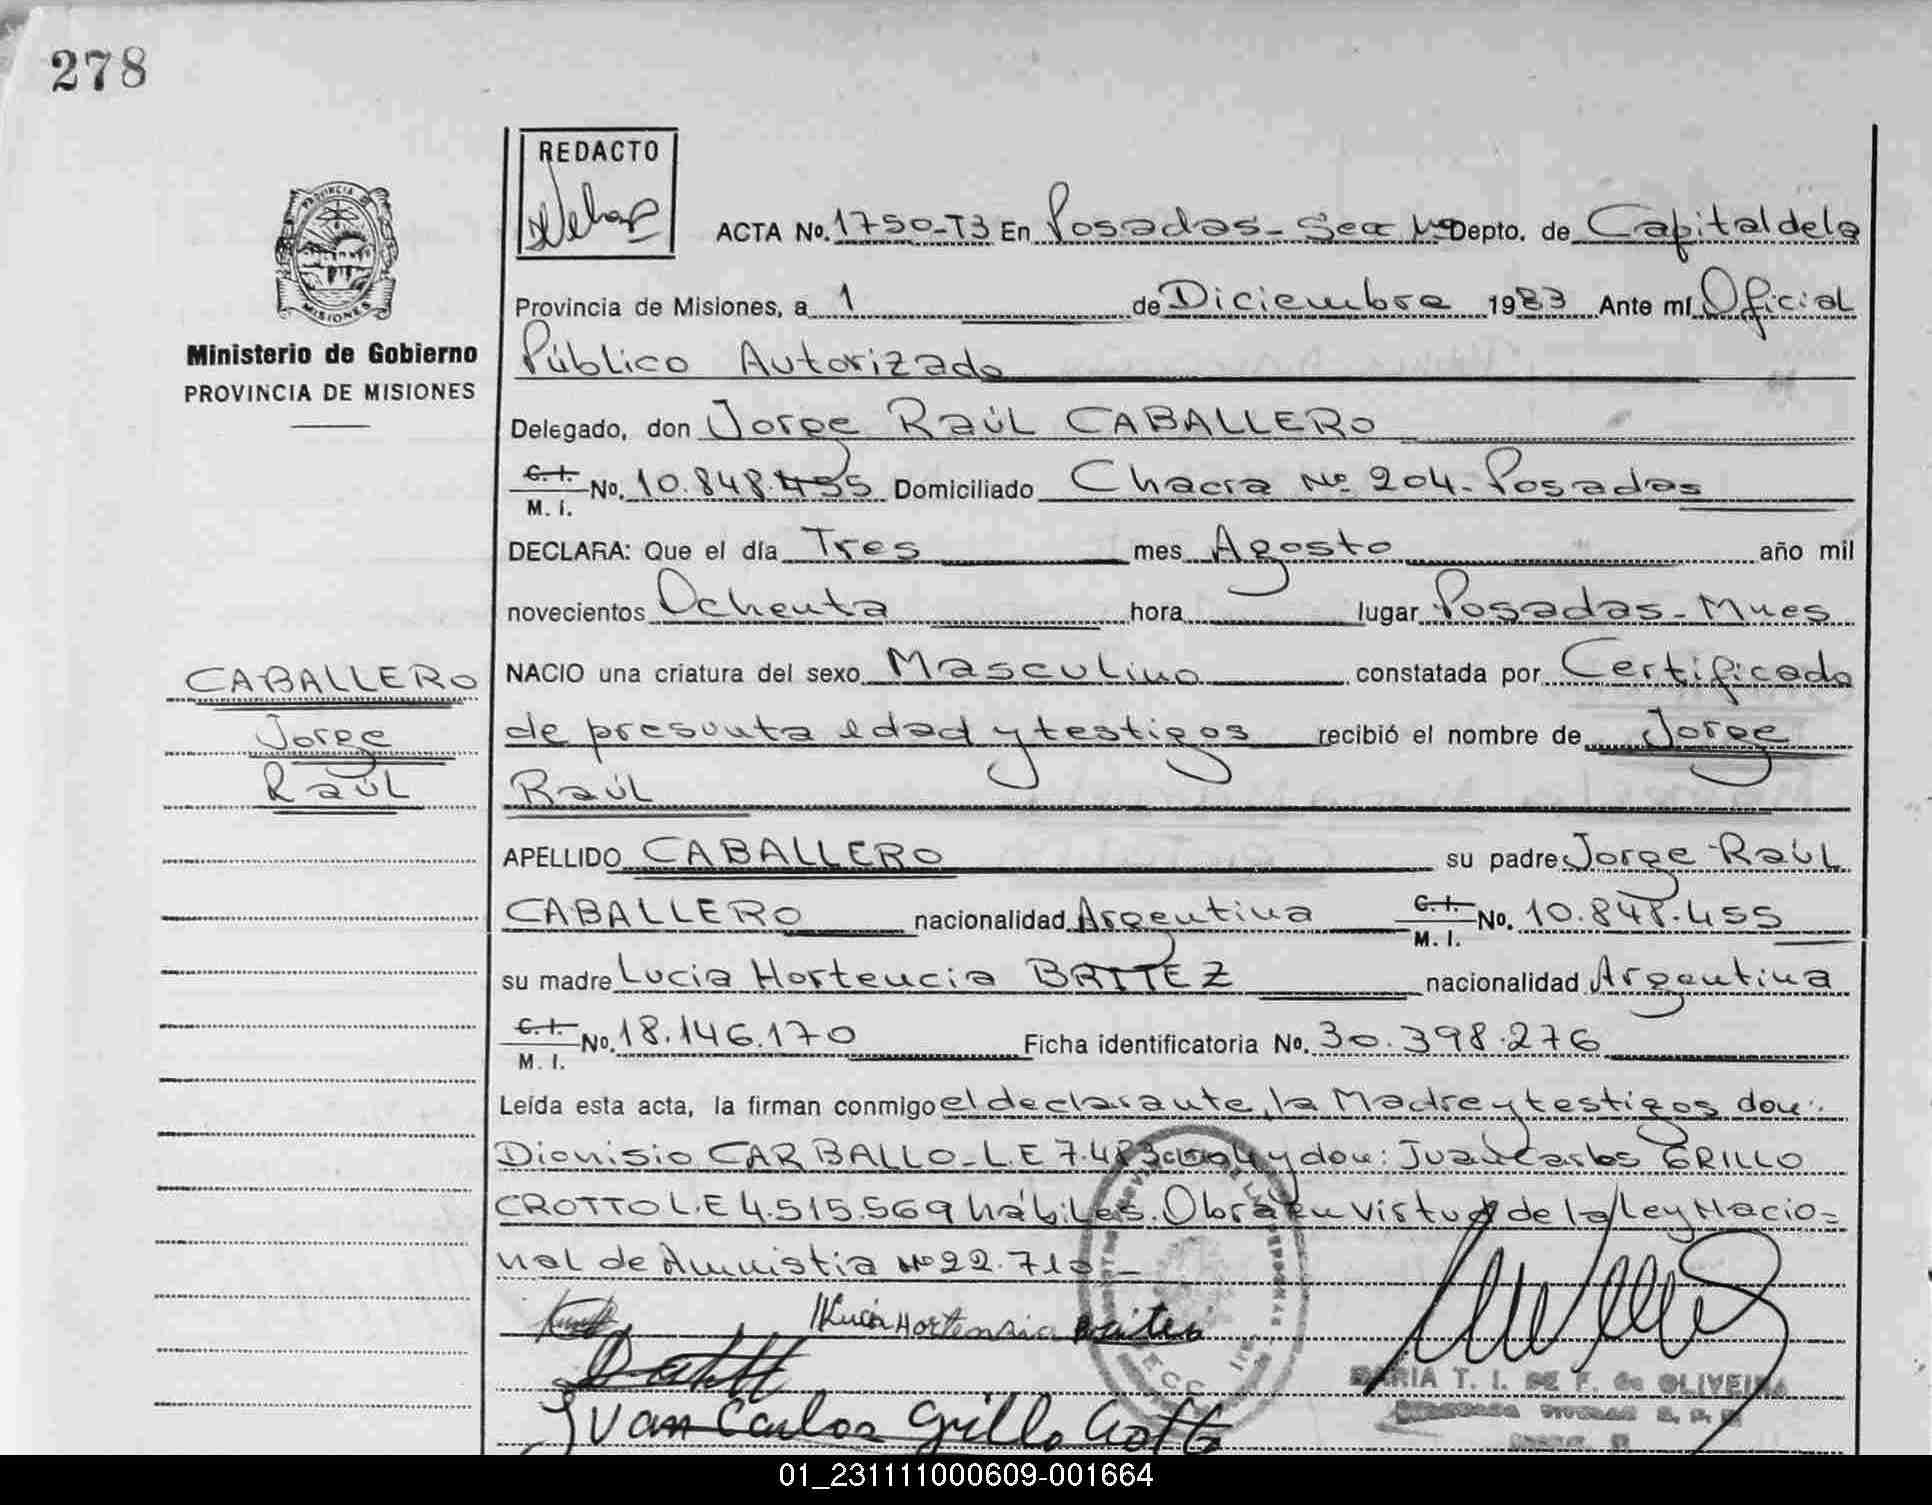 278
REDACTO
PROVINCIA DE
MISIONES
Ministerio de Gobierno
PROVINCIA DE MISIONES
ACTA No. 1750-T3 En Posadas- Secc Depto. de Capital de la
Provincia de Misiones, a 1 de Diciembre 1983 Ante mí Oficial
Público Autorizado
Delegado, don Jorge Raúl CABALLERO
C. I. M. I. No. 10.848.455 Domiciliado Chacra Nº 204- Posadas
DECLARA: Que el día Tres mes Agosto año mil
novecientos Ochenta hora lugar Posadas- Mnes
NACIO una criatura del sexo Masculino constatada por Certificado
de presunta edad y testigos recibió el nombre de Jorge
Raúl
CABALLERO
Jorge
Raúl
APELLIDO CABALLERO su padre Jorge Raúl
CABALLERO nacionalidad Argentina C. I. M. I. No. 10.848.455
su madre Lucia Hortencia BRITEZ nacionalidad Argentina
C. I. M. I. No. 18.146.170 Ficha identificatoria No. 30.398.276
Leída esta acta, la firman conmigo el declarante, la Madre y testigos don:
Dionisio CARBALLO- L.E 7.483. y don: Juan Carlos GRILLO
CROTTO L.E 4.515.569 hábiles. Obra en virtud de la Ley Nacio=
nal de Amnistia Nº 22.710 -
Lucia Hortensia Britez
Juan Carlos Grillo Crotto
MARIA T. I. DE F. de OLIVEIRA
01_231111000609-001664